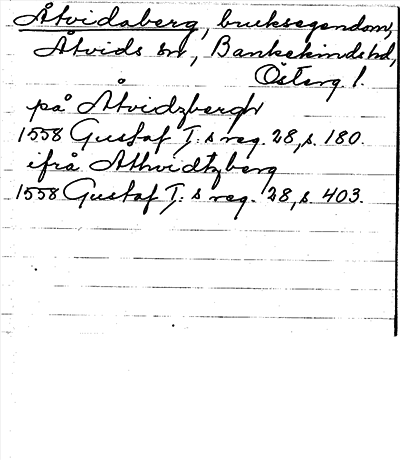 Åtvidaberg, bruksegendom,
Åtvids sn, Bankekinds hd,
Österg. l.
på Åtvidzbergh
1558 Gustaf I:s reg. 28, s. 180.
ifrå Athvidtzberg
1558 Gustaf I:s reg. 28, s. 403.